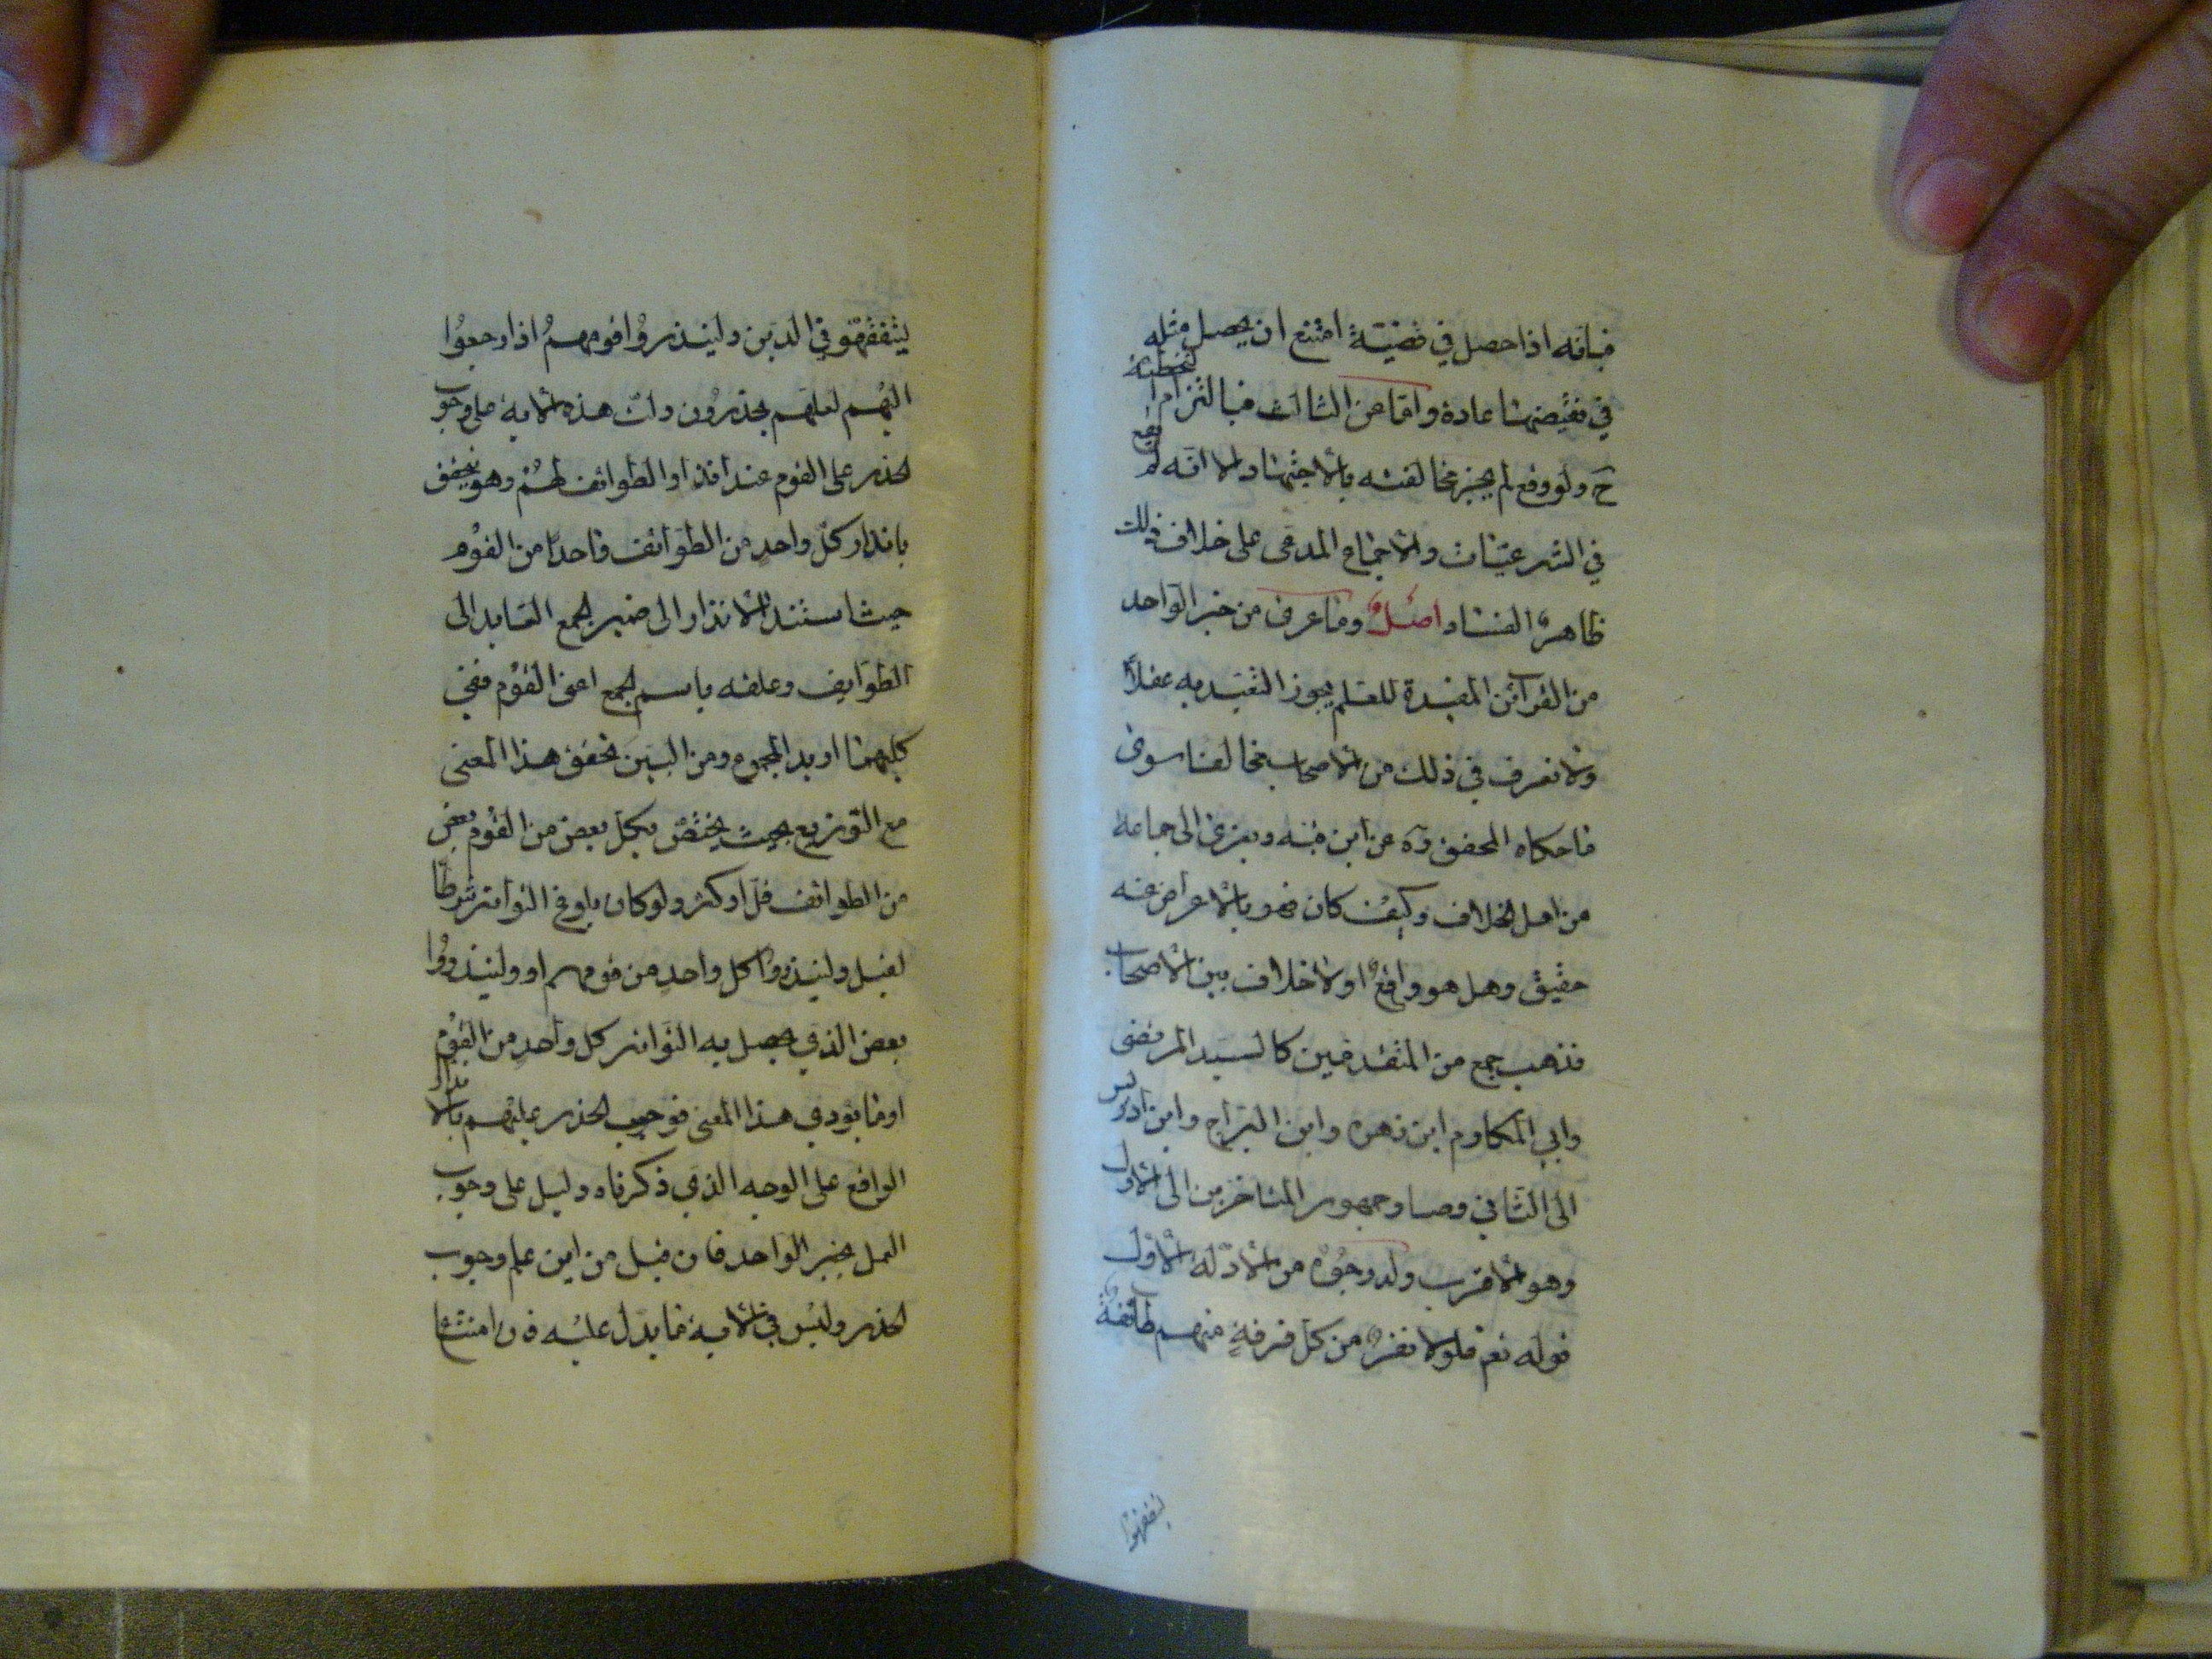 فبانه اذا حصل في قضية امتنع ان يحصل مثله
في نقيضها عادة واما عن الثالث فبالتزام التخطئة
ح ولو وقع لم يجز مخالفته بالاجتهاد الا انه لم يقع
في الشرعيات والاجماع المدعى على خلاف ذلك
ظاهر الفساد اصل وما عرى من خبر الواحد
من القرائن المفيدة للعلم يجوز التعبد به عقلا
ولا نعرف في ذلك من الاصحاب مخالفا سوى
ما حكاه المحقق ره عن ابن قبه ويعزى الى جماعة
من اهل الخلاف وكيف كان فهو بالاعراض عنه
حقيق وهل هو واقع او لا خلاف بين الاصحاب
فذهب جمع من المتقدمين كالسيد المرتضى
وابي المكارم ابن زهره وابن البراج وابن ادريس
الى الثاني وصار جمهور المتاخرين الى الاول
وهو الاقرب وله وجوه من الادلة الاول
قوله تعم فلولا نفر من كل فرقة منهم طائفة
ليتفقهوا
ليتفقهوا في الدين ولينذروا قومهم اذا رجعوا
اليهم لعلهم يحذرون دلت هذه الاية على وجوب
الحذر على القوم عند انذار الطوائف لهم وهو يتحقق
بانذار كل واحد من الطوائف واحدا من القوم
حيث اسند الانذار الى ضمير الجمع العايد الى
الطوايف وعلقه باسم الجمع اعنى القوم ففي
كليهما اريد المجموع ومن البين تحقق هذا المعنى
مع التوزيع بحيث يختص بكل بعض من القوم بعض
من الطوائف قل او كثر ولو كان بلوغ التواتر شرطا
لقيل ولينذروا كل واحد من قومهم او ولينذروا
بعض الذي يحصل به التواتر كل واحد من القوم
او ما يودي هذا المعنى فوجوب الحذر عليهم بالانذار
الواقع على الوجه الذي ذكرناه دليل على وجوب
العمل بخبر الواحد فان قيل من اين علم وجوب
الحذر وليس في الاية ما يدل عليه فان امتناع